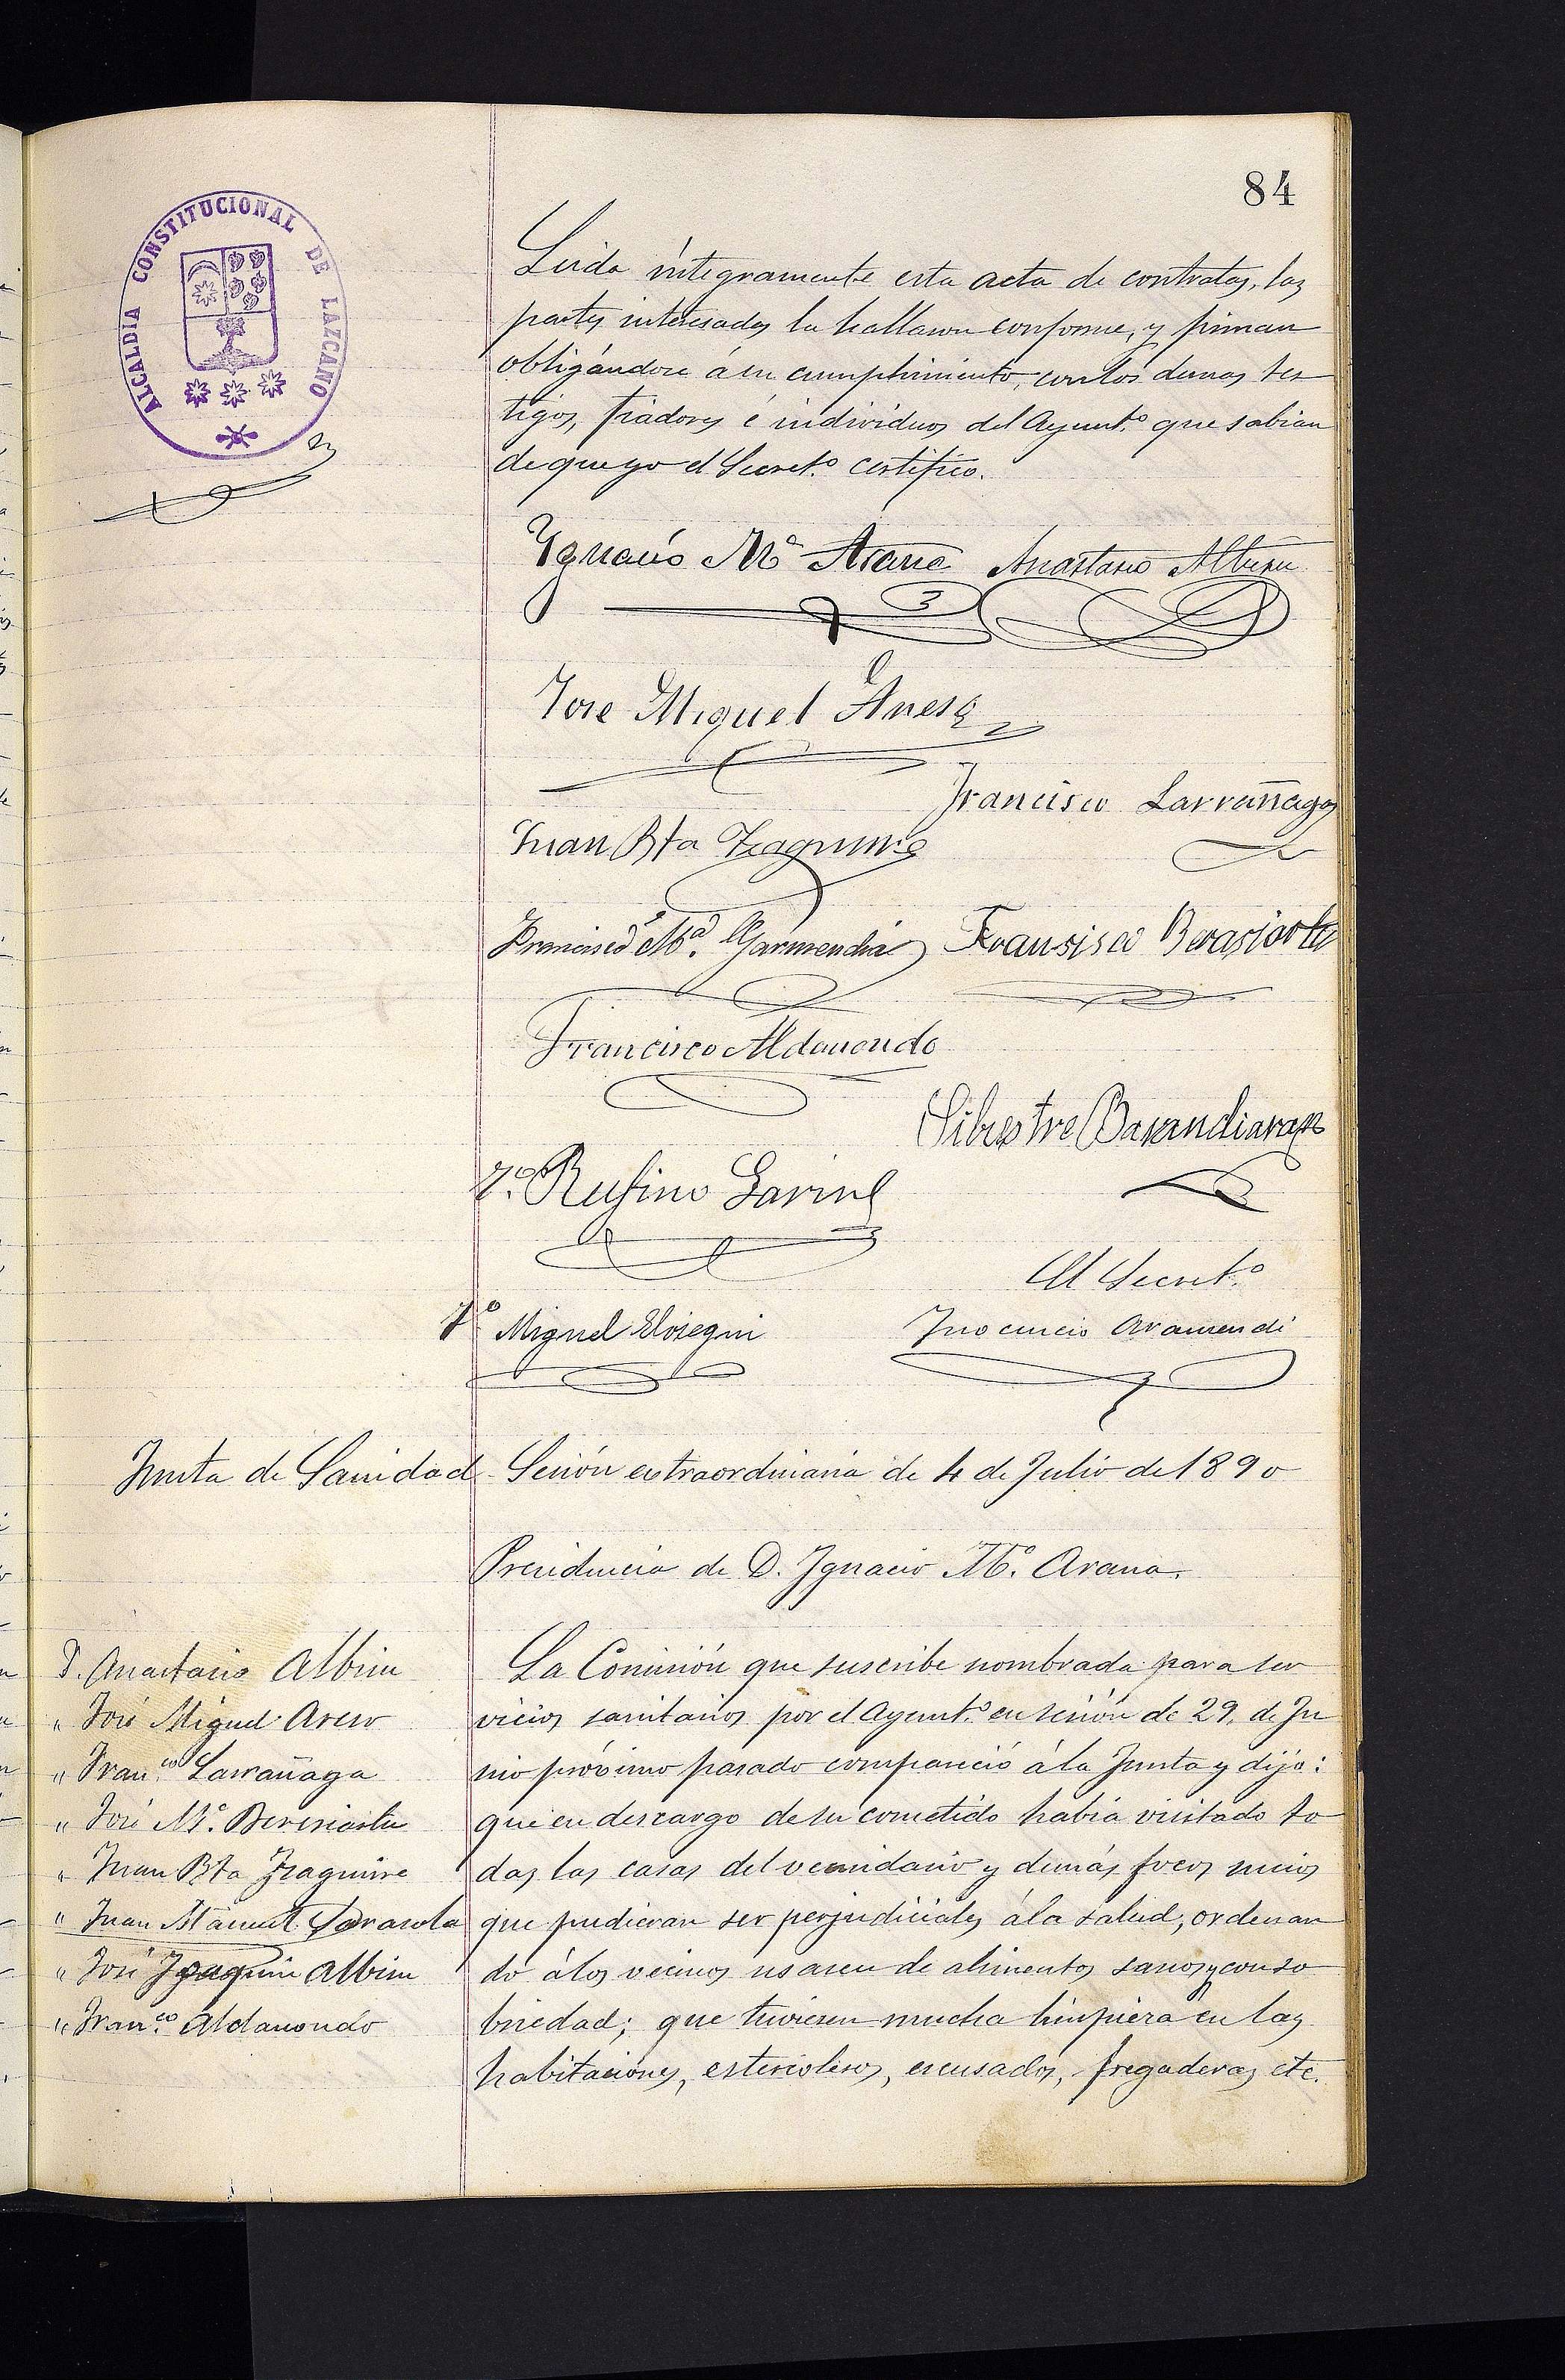 84
ALCALDIA CONSTITUCIONAL DE LAZCANO
Leida íntegramente esta acta de contratas, las
partes interesadas la hallaron conforme, y firman
obligándose á su cumplimiento, con los demas tes
tigos, fiadores é individuos del Ayunt.º que sabian
de que yo el Secret.º certifico.
Ygnacio Mª Arana Anastasio Albisu
Jose Miguel Areso
Francisco Larrañaga
Juan Bta Yzaguirre
Francisco Mª. Garmendia Fransisco Berasiartu
Francisco Aldanondo
Silvestre Barandiaran
Tº. Rufino Garin
El Secret.º
Tº Miguel Elosegui
Ynocencio Aramendi
Junta de Sanidad
Sesión extraordinaria de 4 de Julio de 1890
Presidencia de D. Ygnacio Mª. Arana.
D. Anastasio Albisu
" José Miguel Areso
" Fran.co Larrañaga
" José Mª. Beresiartu
" Juan Bta Yzaguirre
" Juan Manuel Sarasola
" José Joaquin Albisu
" Fran.co Aldanondo
La Comisión que suscribe nombrada para ser
vicios sanitarios por el Ayunt.º en sesión de 29, de Ju
nio próximo pasado compareció á la Junta y dijo:
que en descargo de su cometido habia visitado to
das las casas del vecindario y demás focos sucios
que pudieran ser perjudiciales á la salud, ordenan
do á los vecinos usasen de alimentos sanos y con so
briedad; que tuviesen mucha limpieza en las
habitaciones, estercoleros, escusados, fregaderas etc.